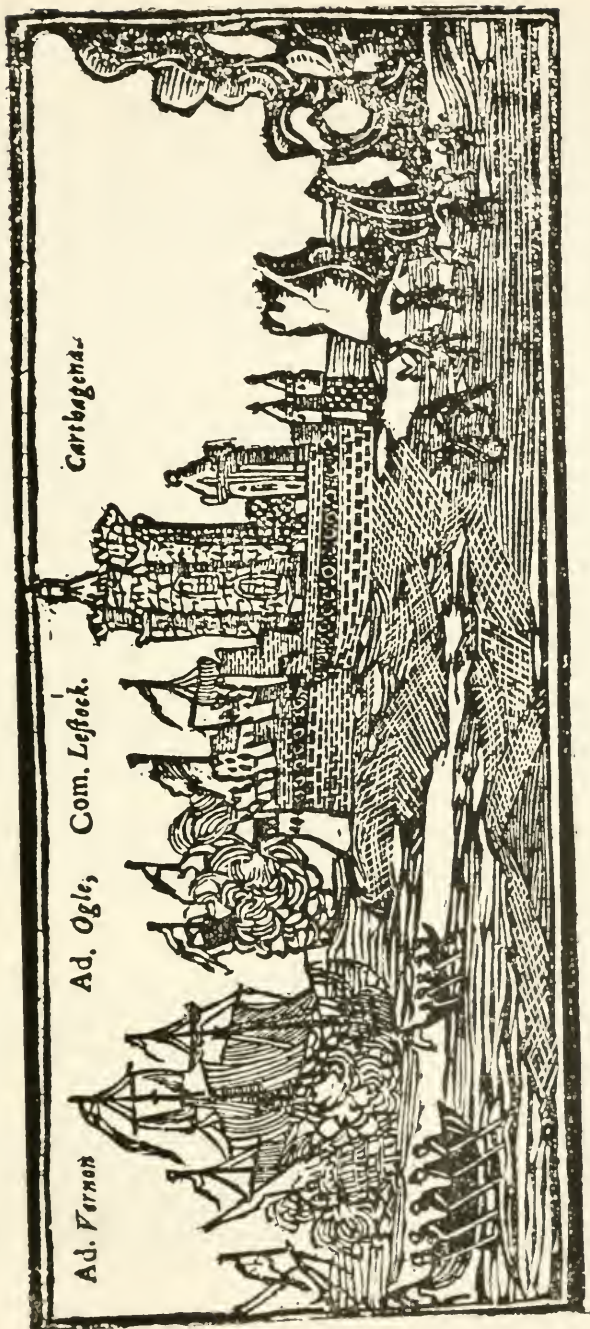 Ad. Vernon Ad. Ogle, Com. Leſtock. Carthagena.